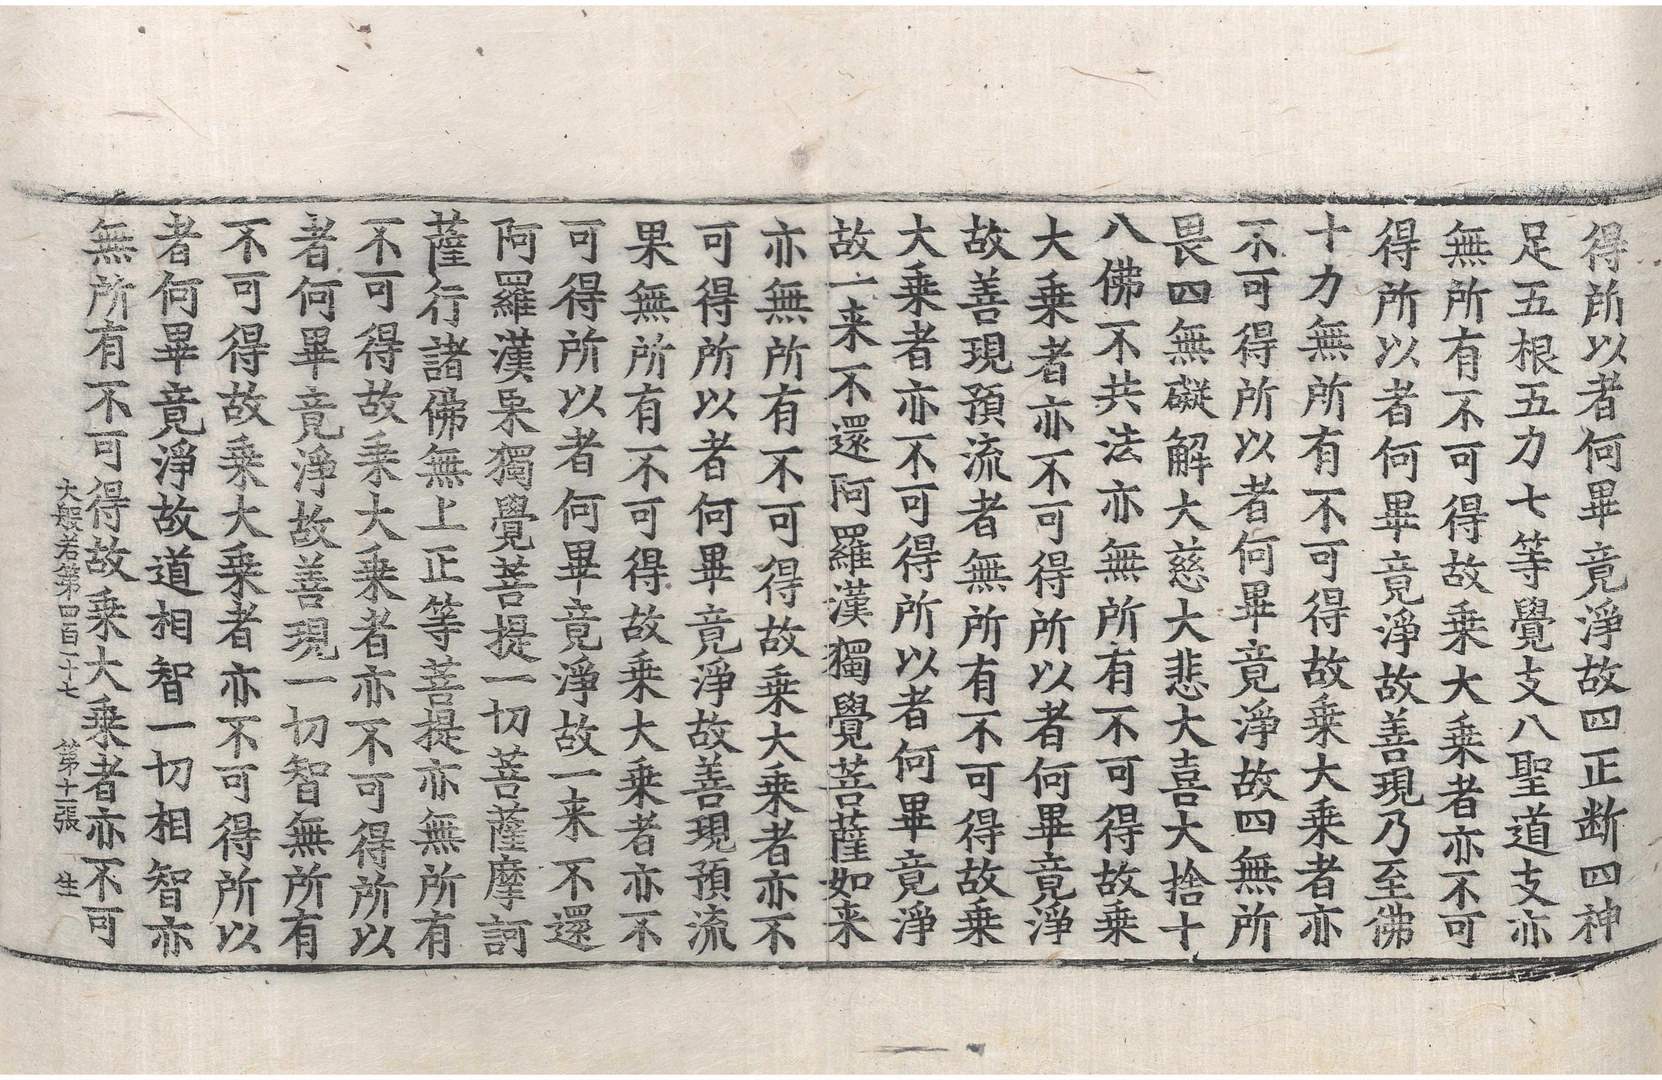 得所以者何畢竟淨故四正断四神
足五根五力七等覺支八聖道支亦
無所有不可得故乗大乗者亦不可
得所以者何畢竟淨故善現乃至佛
十力無所有不可得故乗大乗者亦
不可得所以者何畢竟淨故四無所
畏四無礙解大慈大悲大喜大捨十
八佛不共法亦無所有不可得故乗
大乗者亦不可得所以者何畢竟淨
故善現預流者無所有不可得故乗
大乗者亦不可得所以者何畢竟淨
故一来不還阿羅漢獨覺菩薩如来
亦無所有不可得故乗大乗者亦不
可得所以者何畢竟淨故善現預流
果無所有不可得故乗大乗者亦不
可得所以者何畢竟淨故一来不還
阿羅漢果獨覺菩提一切菩薩摩訶
薩行諸佛無上正等菩提亦無所有
不可得故乗大乗者亦不可得所以
者何畢竟淨故善現一切智無所有
不可得故乗大乗者亦不可得所以
者何畢竟淨故道相智一切相智亦
無所有不可得故乗大乗者亦不可
大般若第四百一十七 第十一張 生